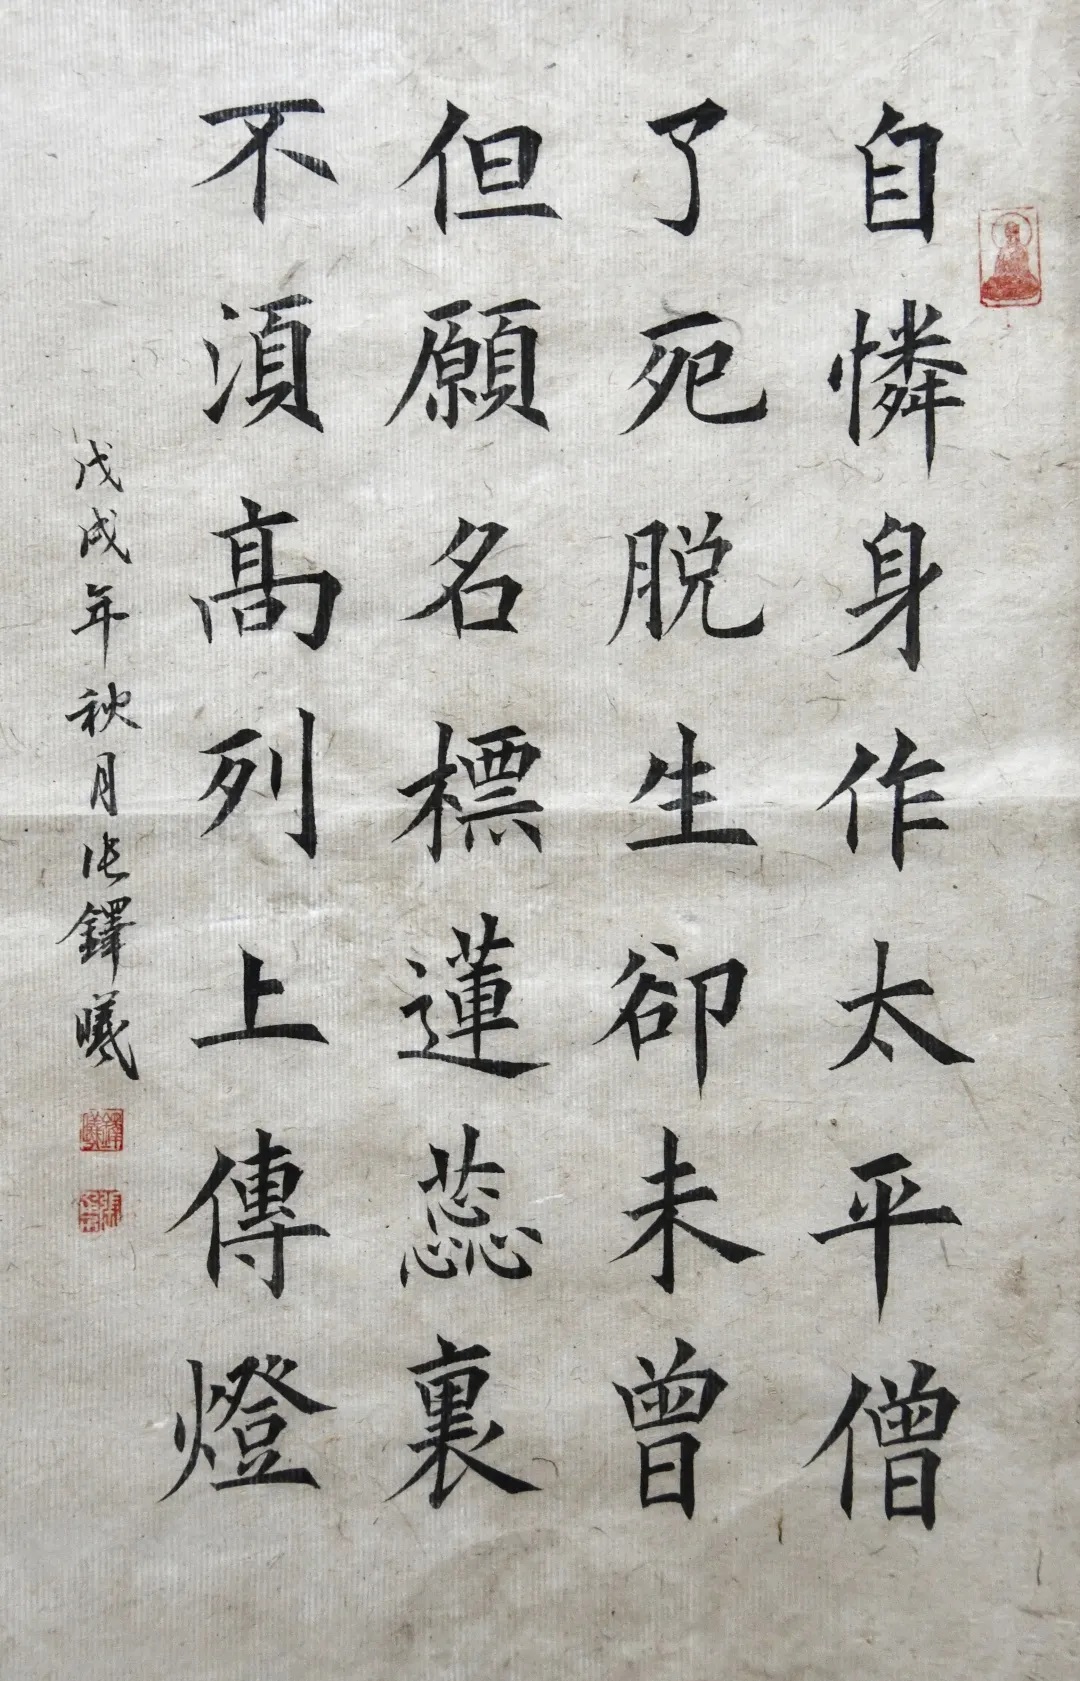 自憐身作太平僧
了死脱生卻未曾
但願名標蓮蕊裏
不湏髙列上傳燈
戊戌年秋月张鐸曦
鐸曦